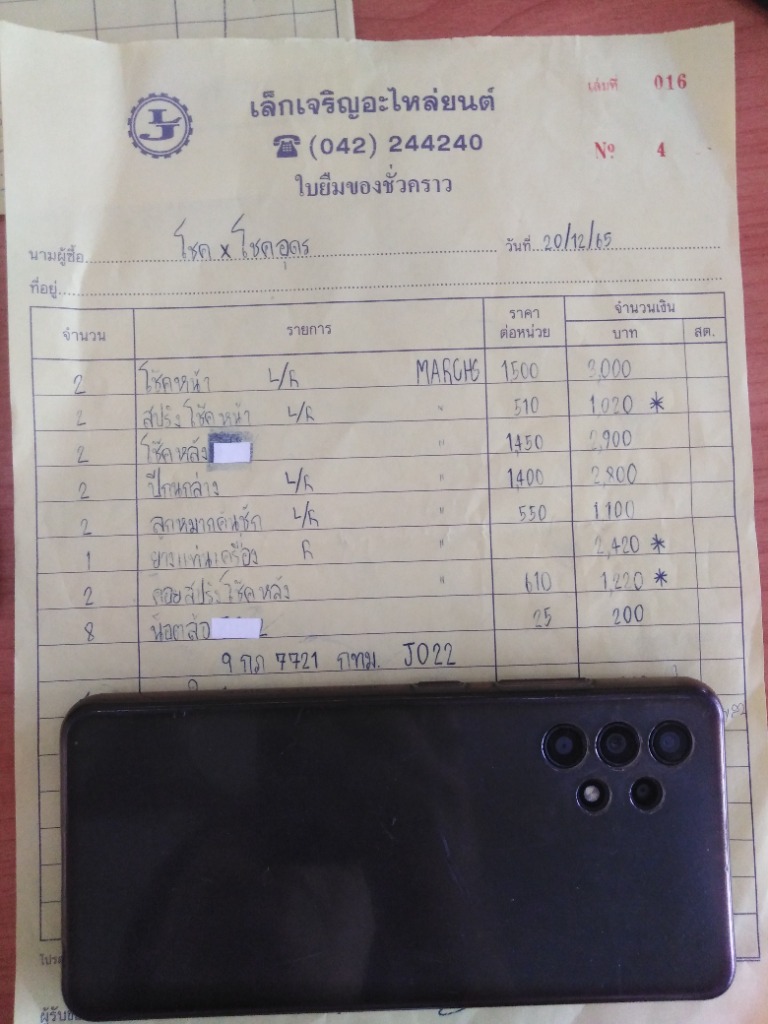 LJ
เล็กเจริญอะไหล่ยนต์ เล่มที่ 016
☎ (042) 244240 Nº 4
ใบยืมของชั่วคราว
นามผู้ซื้อ โชค x โชคอุดร วันที่ 20/12/65
ที่อยู่
จำนวน รายการ ราคาต่อหน่วย จำนวนเงิน บาท สต.
2 โช๊คหน้า L/R MARCH 1500 3,000
2 สปริงโช๊คหน้า L/R " 510 1,020 *
2 โช๊คหลัง " 1,450 2,900
2 ปีกนกล่าง L/R " 1,400 2,800
2 ลูกหมากคันชัก L/R " 550 1,100
1 ยางแท่นเครื่อง R 2,420 *
2 คอยสปริงโช๊คหลัง " 610 1,220 *
8 น๊อตล้อ 25 200
9 กภ 7721 กทม. J022